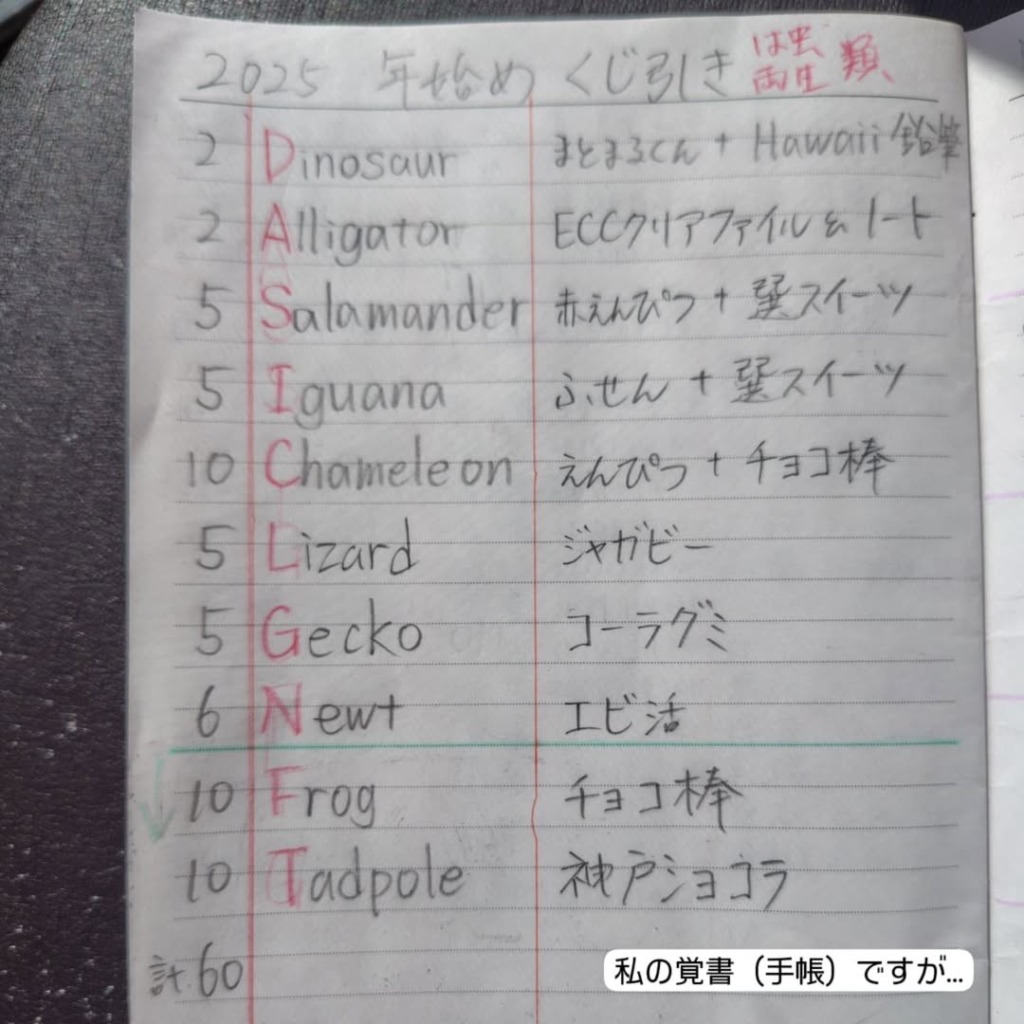 2025 年始め くじ引き は虫両生類
2 Dinosaur まとまるくん + Hawaii 鉛筆
2 Alligator ECCクリアファイル & ノート
5 Salamander 赤えんぴつ + 巽スイーツ
5 Iguana ふせん + 巽スイーツ
10 Chameleon えんぴつ + チョコ棒
5 Lizard ジャガビー
5 Gecko コーラグミ
6 Newt エビ活
10 Frog チョコ棒
10 Tadpole 神戸ショコラ
計.60
私の覚書（手帳）ですが…